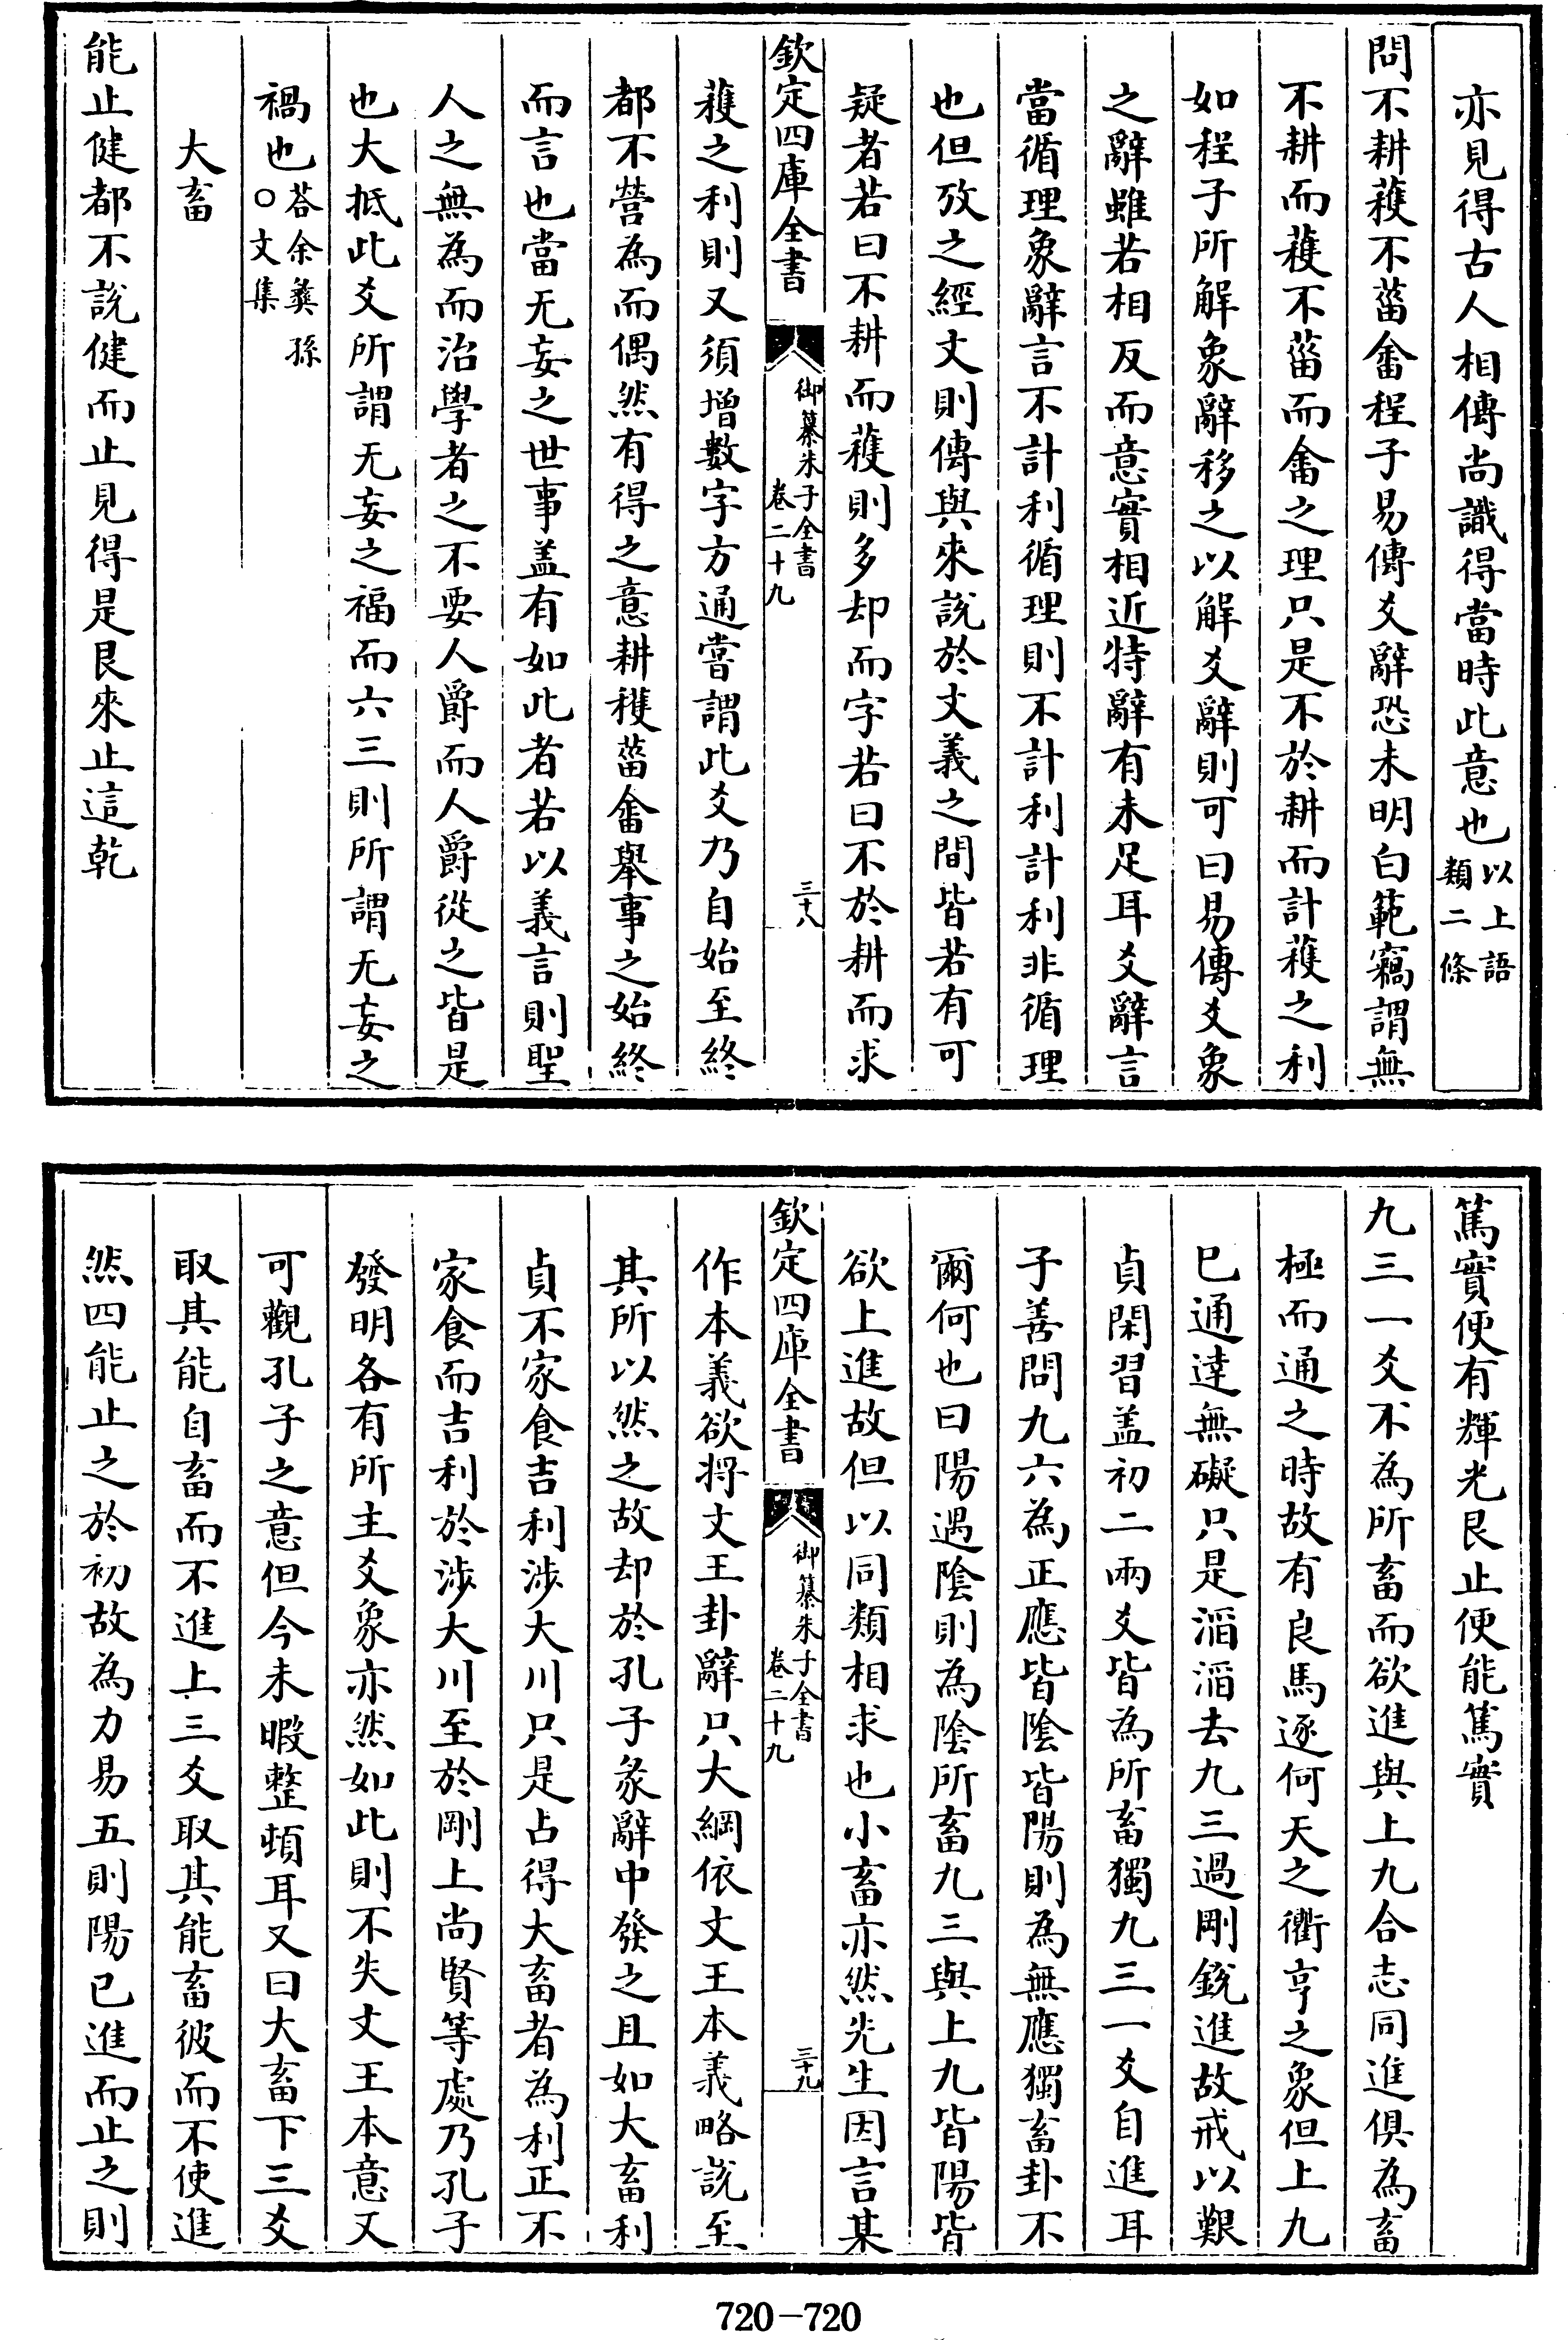 亦見得古人相傳尚識得當時此意也以上語類二條
問不耕穫不菑畬程子易傳爻辭恐未明白範竊謂無
不耕而穫不菑而畬之理只是不於耕而計穫之利
如程子所解象辭移之以解爻辭則可曰易傳爻象
之辭雖若相反而意實相近特辭有未足耳爻辭言
當循理象辭言不計利循理則不計利計利非循理
也但攷之經文則傳與來說於文義之間皆若有可
疑者若曰不耕而穫則多却而字若曰不於耕而求
欽定四庫全書
御纂朱子全書
卷二十九
三十八
穫之利則又須增數字方通嘗謂此爻乃自始至終
都不營為而偶然有得之意耕穫菑畬舉事之始終
而言也當无妄之世事盖有如此者若以義言則聖
人之無為而治學者之不要人爵而人爵從之皆是
也大抵此爻所謂无妄之福而六三則所謂无妄之
禍也答余彝孫○文集
大畜
能止健都不說健而止見得是艮來止這乾
篤實便有輝光艮止便能篤實
九三一爻不為所畜而欲進與上九合志同進俱為畜
極而通之時故有良馬逐何天之衢亨之象但上九
已通達無礙只是滔滔去九三過剛銳進故戒以艱
貞閑習盖初二兩爻皆為所畜獨九三一爻自進耳
子善問九六為正應皆陰皆陽則為無應獨畜卦不
爾何也曰陽遇陰則為陰所畜九三與上九皆陽皆
欲上進故但以同類相求也小畜亦然先生因言某
欽定四庫全書
御纂朱子全書
卷二十九
三十九
作本義欲將文王卦辭只大綱依文王本義略說至
其所以然之故却於孔子彖辭中發之且如大畜利
貞不家食吉利涉大川只是占得大畜者為利正不
家食而吉利於涉大川至於剛上尚賢等處乃孔子
發明各有所主爻象亦然如此則不失文王本意又
可觀孔子之意但今未暇整頓耳又曰大畜下三爻
取其能自畜而不進上三爻取其能畜彼而不使進
然四能止之於初故為力易五則陽已進而止之則
720-720